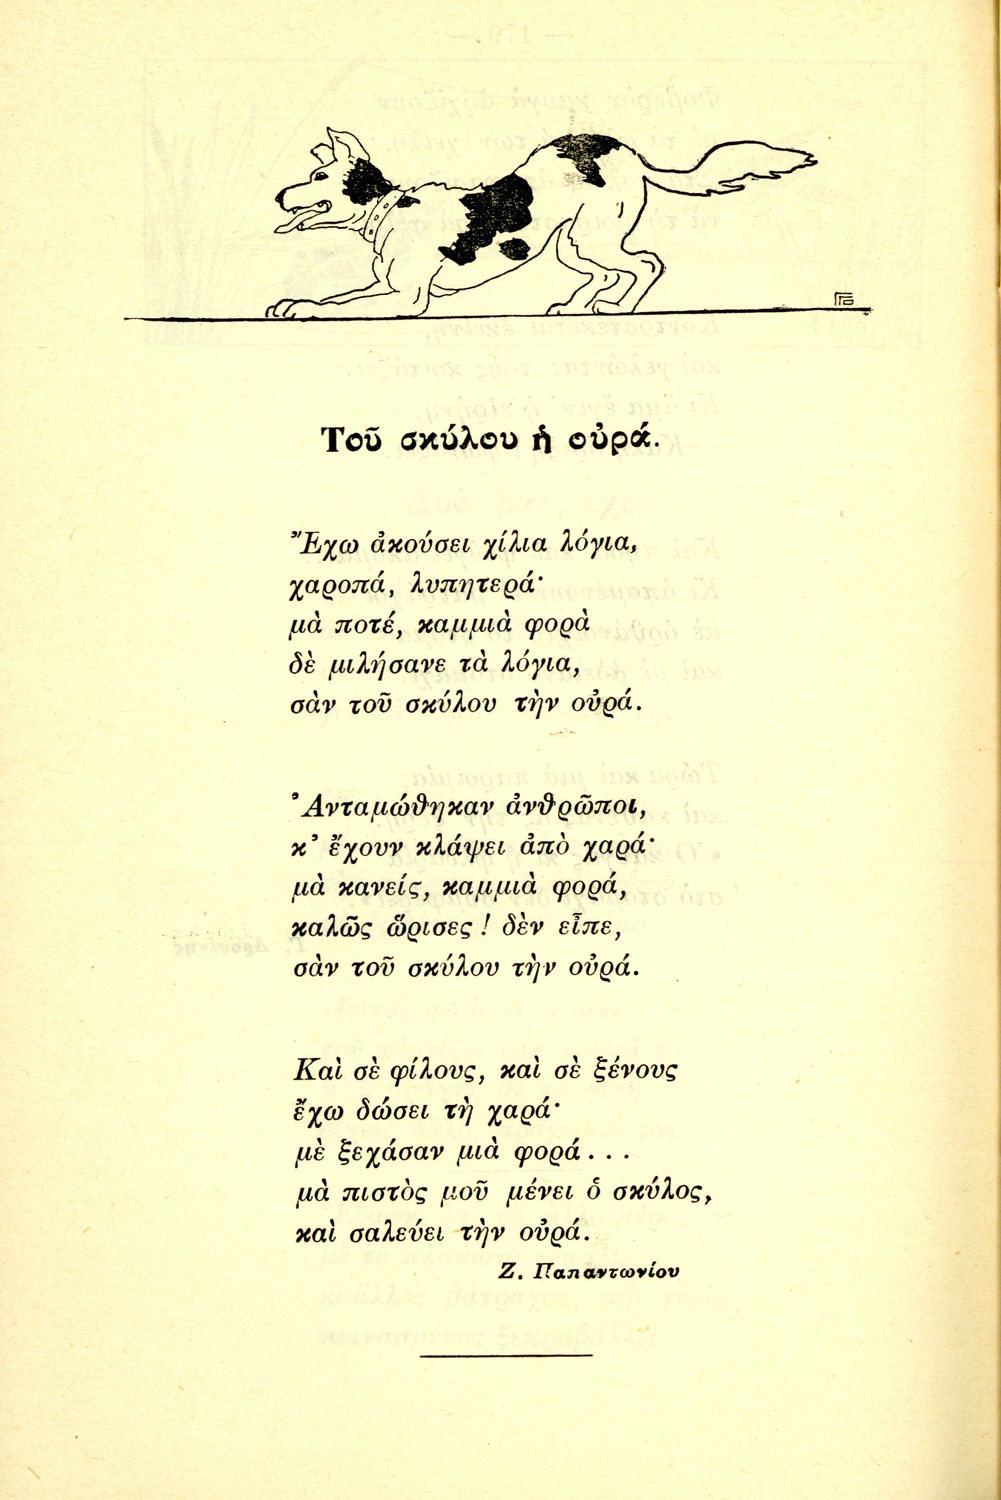 Τοῦ σκύλου ἡ οὐρά.
Ἔχω ἀκούσει χίλια λόγια,
χαροπά, λυπητερά·
μὰ ποτέ, καμμιὰ φορὰ
δὲ μιλήσανε τὰ λόγια,
σὰν τοῦ σκύλου τὴν οὐρά.
Ἀνταμώθηκαν ἀνθρῶποι,
κ' ἔχουν κλάψει ἀπὸ χαρά·
μὰ κανείς, καμμιὰ φορά,
καλῶς ὥρισες! δὲν εἶπε,
σὰν τοῦ σκύλου τὴν οὐρά.
Καὶ σὲ φίλους, καὶ σὲ ξένους
ἔχω δώσει τὴ χαρά·
μὲ ξεχάσαν μιὰ φορά...
μὰ πιστὸς μοῦ μένει ὁ σκύλος,
καὶ σαλεύει τὴν οὐρά.
Ζ. Παπαντωνίου